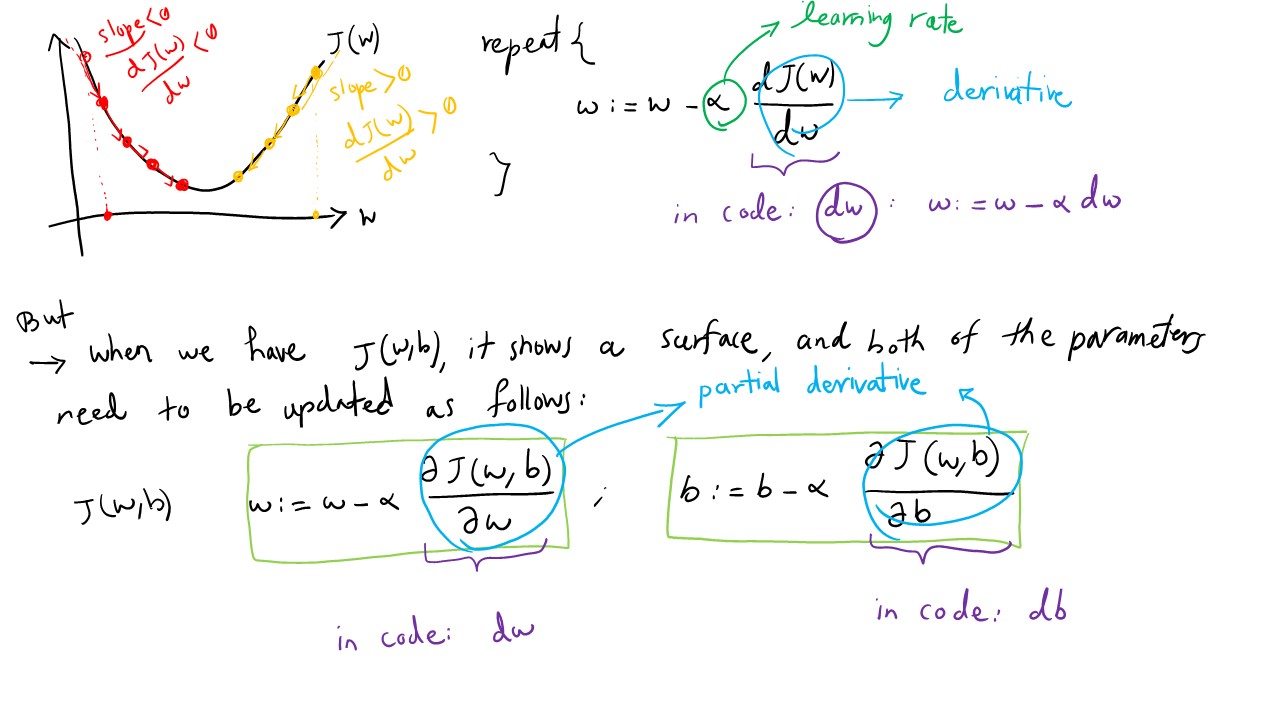 slope<0
dJ(w)/dw <0
J(w)
slope>0
dJ(w)/dw >0
w
repeat {
w := w - α dJ(w)/dw
}
learning rate
derivative
in code: dw : w := w - α dw
But
→ when we have J(w,b), it shows a surface, and both of the parameters
need to be updated as follows:
partial derivative
J(w,b) w := w - α ∂J(w,b)/∂w ; b := b - α ∂J(w,b)/∂b
in code: dw
in code: db